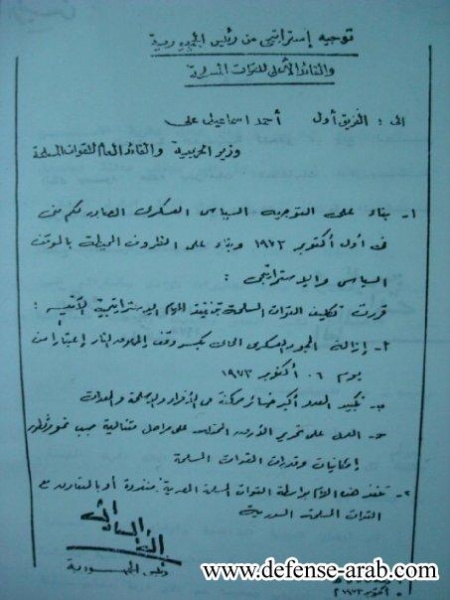 توجيه إستراتيجى من رئيس الجمهورية
والقائد الأعلى للقوات المسلحة
إلى : الفريق أول أحمد اسماعيل على
وزير الحربية والقائد العام للقوات المسلحة
١- بناء على التوجيه السياسى العسكرى الصادر لكم منى
فى أول أكتوبر ١٩٧٣ وبناء على الظروف المحيطة بالموقف
السياسى والاستراتيجى :
قررت تكليف القوات المسلحة بتنفيذ المهام الاستراتيجية الآتية :
أ- إزالة الجمود العسكرى الحالى بكسر وقف إطلاق النار إعتبارا من
يوم ٦ أكتوبر ١٩٧٣
ب- تكبيد العدو أكبر خسائر ممكنة فى الأفراد والأسلحة والمعدات
ج- العمل على تحرير الأرض المحتلة على مراحل متتالية حسب نمو وتطور
إمكانيات وقدرات القوات المسلحة
٢- تنفذ هذه المهام بواسطة القوات المسلحة المصرية منفردة أو بالتعاون مع
القوات المسلحة السورية
رئيس الجمهورية
أكتوبر ١٩٧٣
www.defense-arab.com